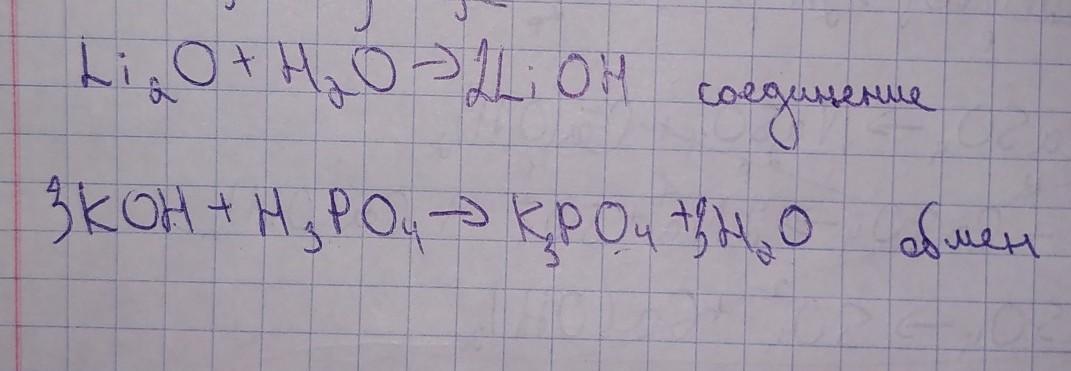 Li₂O + H₂O → 2LiOH соединение
3KOH + H₃PO₄ → K₃PO₄ + 3H₂O обмен